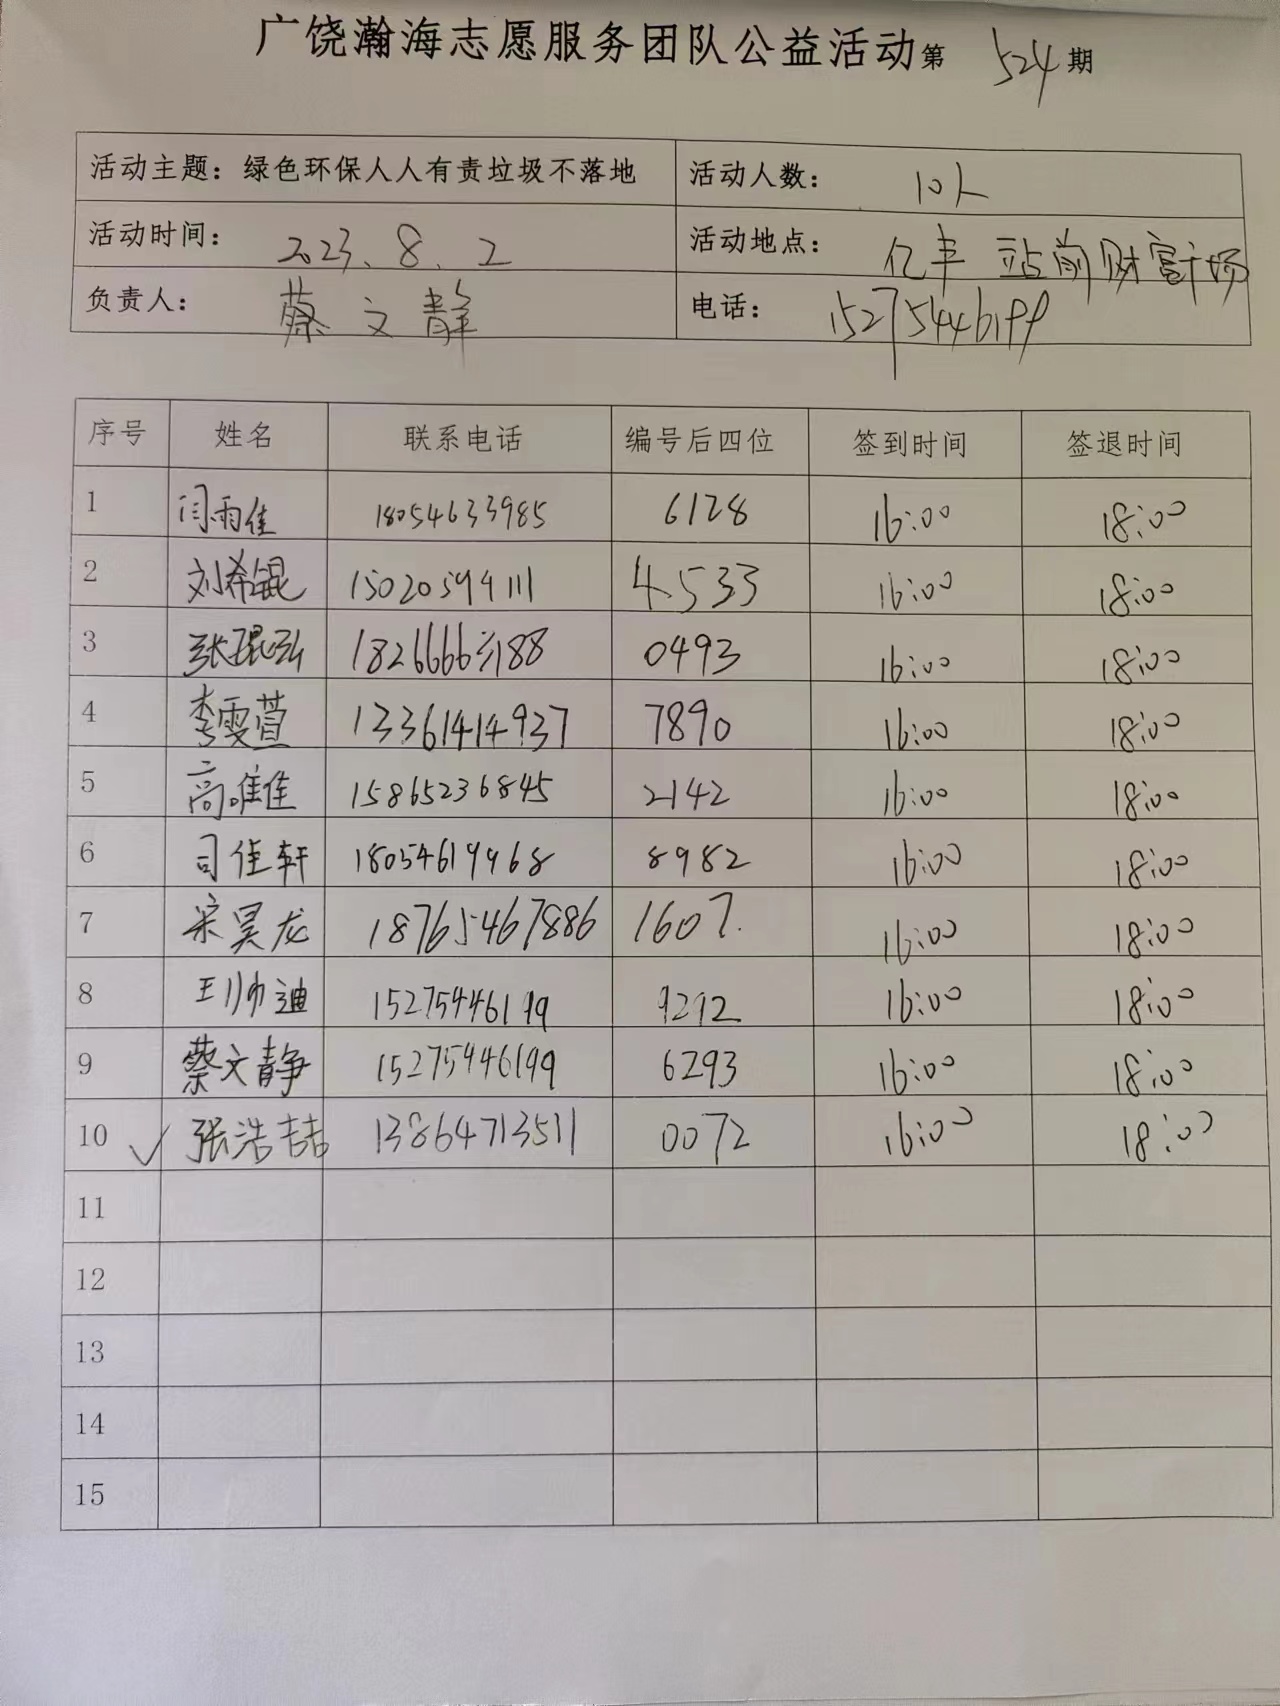 广饶瀚海志愿服务团队公益活动第 524 期
活动主题：绿色环保人人有责垃圾不落地 活动人数： 10人
活动时间： 2023.8.2 活动地点： 亿丰 站前财富广场
负责人： 蔡文静 电话： 15275446199
序号 姓名 联系电话 编号后四位 签到时间 签退时间
1 闫雨佳 18054633985 6128 16:00 18:00
2 刘希锟 15020594111 4533 16:00 18:00
3 张琨泓 18266663188 0493 16:00 18:00
4 李雯萱 13361414937 7890 16:00 18:00
5 高唯佳 15865236845 2142 16:00 18:00
6 司佳轩 18054619968 8982 16:00 18:00
7 宋昊龙 18765467886 1607. 16:00 18:00
8 王帅迪 15275446199 9292 16:00 18:00
9 蔡文静 15275446199 6293 16:00 18:00
10 ✓ 张浩喆 13864713511 0072 16:00 18:00
11
12
13
14
15